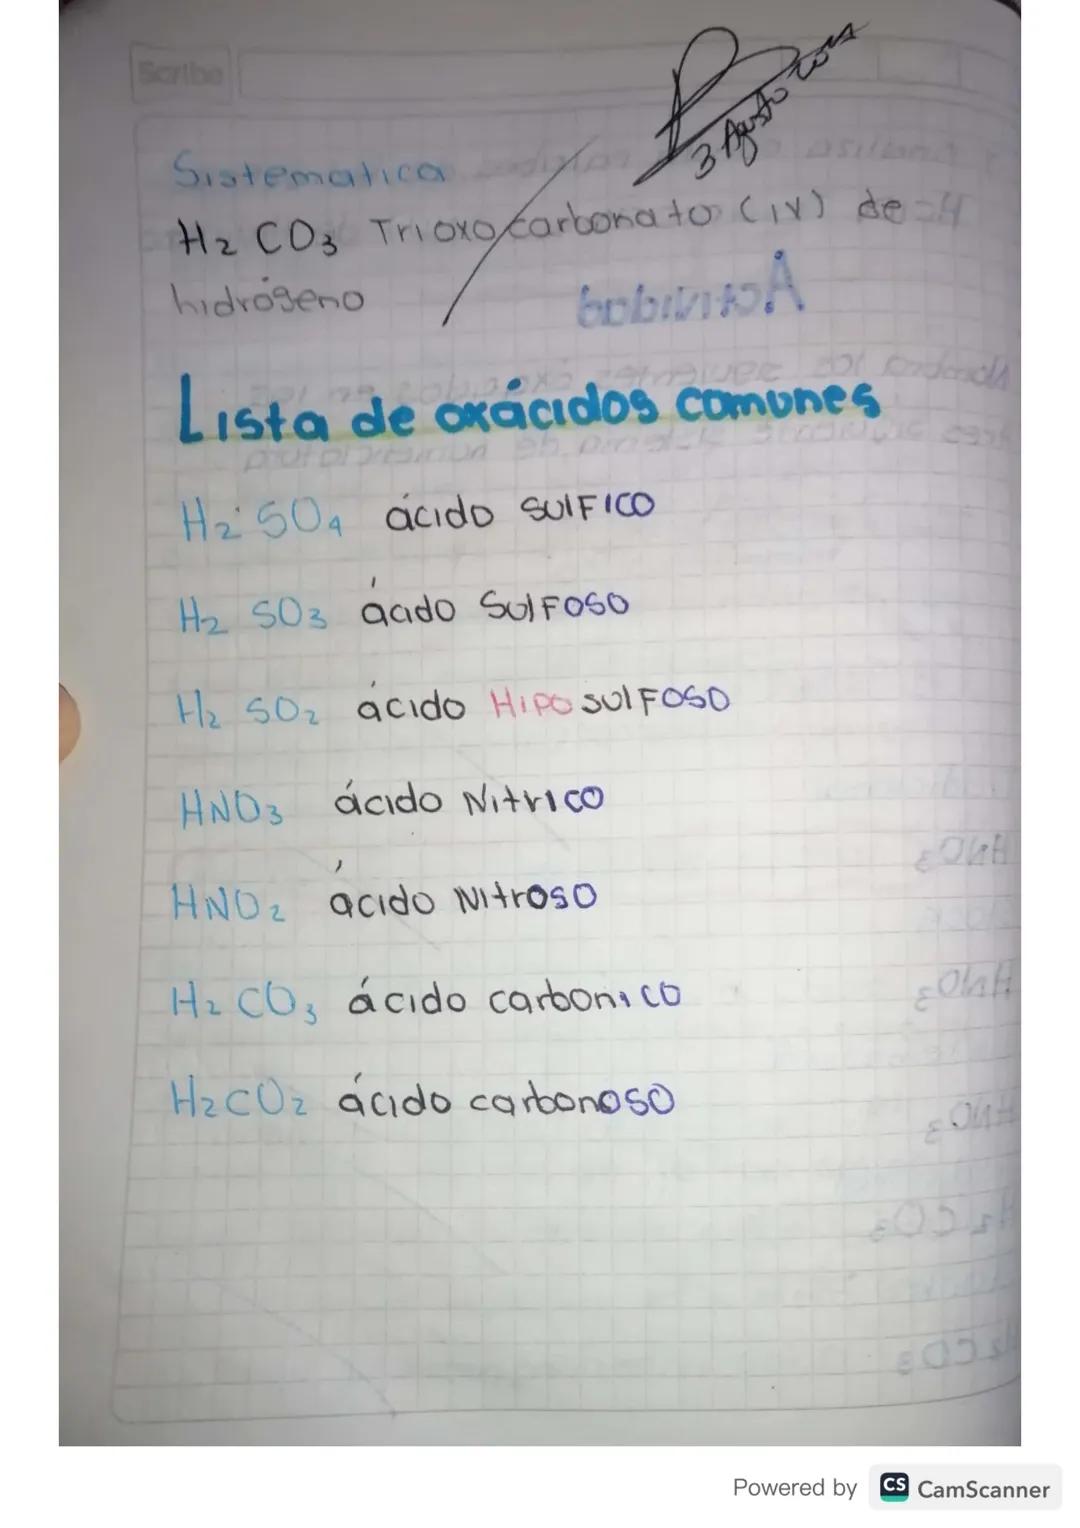 Scribe
3 Agosto
Sistematica
H2 CO3 Trioxocarbonato (IV) de
hidrógeno
Lista de oxácidos comunes
H2 SO4 ácido sulFICO
H2 SO3 ácido SulFOSO
H2 SO2 ácido HIPO sulFOSO
HNO3 ácido Nitrico
HNO2 ácido Nitroso
H2 CO3 ácido carbonico
H2CO2 ácido carbonoso
Powered by CS CamScanner